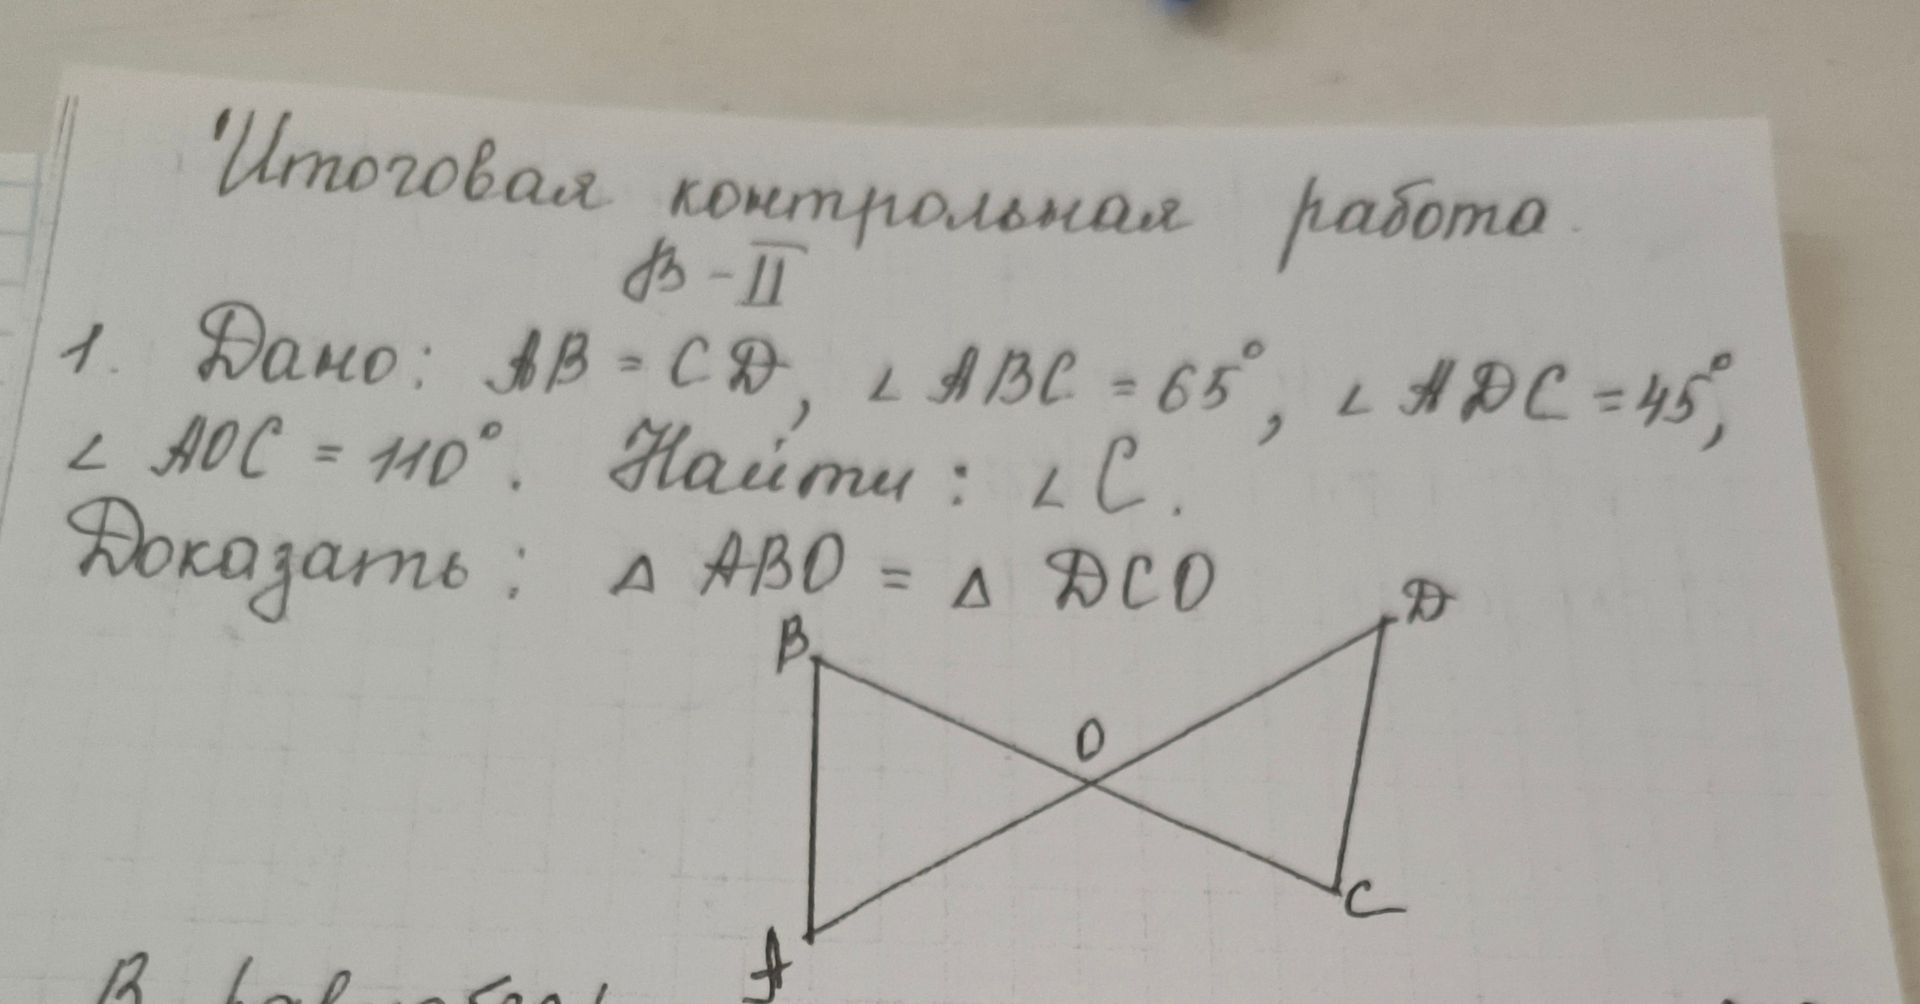 Итоговая контрольная работа.
В - II
1. Дано: AB = CD, ∠ ABC = 65°, ∠ ADC = 45°,
∠ AOC = 110°. Найти: ∠ C.
Доказать: △ ABO = △ DCO
B
D
O
C
A
В